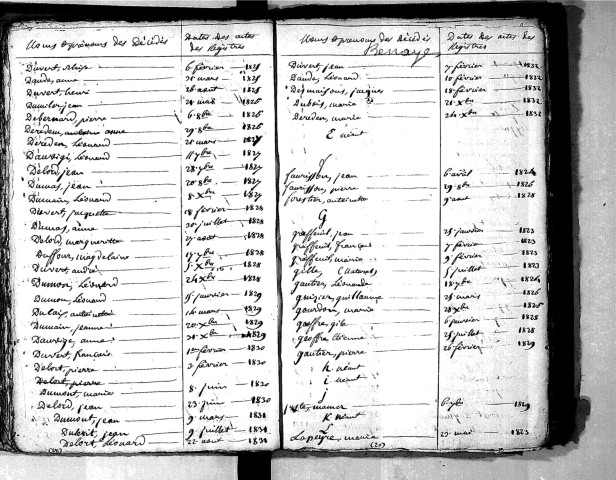 Noms et prénoms des Décédés Dates des actes des Registres
Duvert, 6 février 1825
Daude, anne 21 mars 1825
Duvert, henri 26 aout 1825
Dumilor, jean 21 mai 1826
Debernard, pierre 6 8bre 1826
Deredem, anne 29 8bre 1826
Deredem, Léonard 21 mars 1827
Dauvige, Léonard 11 7bre 1827
Delord, jean 28 7bre 1827
Dumas, jean 20 8bre 1827
Dumain, Léonard 8 Xbre 1827
Duvert, 18 février 1828
Dumas, anne 20 juillet 1828
Delord, marguerite 27 aout 1828
Duffour, magdelaine 17 7bre 1828
Duvert, andré 5 Xbre 1828
Dumon, Léonard 24 Xbre 1828
Dumon, Léonard 15 janvier 1829
Dulair, antoinette 16 mars 1829
Dumain, jeanne 20 Xbre 1829
Dauvige, anne 21 Xbre 1829
Duvert, francois 1er février 1830
Delort, pierre 3 février 1830
Delort, pierre
Dumont, marie 8 juin 1830
Delord, jean 23 juin 1830
Dumont, jean 9 mars 1831
jean 9 juillet 1831
Delort, Léonard 22 aout 1831
Noms et prénoms des Décédés Dates des actes des Registres
Duvert, jean 7 février 1832
Daude, Léonard 10 février 1832
Desmaisons, jacques 18 février 1832
Dubois, marie 21 Xbre 1832
Deredem, marie 24 Xbre 1832
E néant
F
faurisson, jean 6 avril 1824
faurisson, pierre 29 8bre 1826
forestier, antoinette 9 aout 1828
G
graffeuil, jean 25 janvier 1823
graffeuil, françois 7 février 1823
graffeuil, marie 9 février 1823
gille, 5 juillet 1823
gautier, Léonarde 18 7bre 1824
guizier, guillaume 25 mars 1826
gourdon, marie 28 Xbre 1826
geoffre, 6 janvier 1828
geoffre, étienne 25 juillet 1828
gautier, pierre 26 février 1829
h néant
i néant
j
6 7bre 1829
K néant
L
Lapeyre, marie 23 mai 1823
(20)